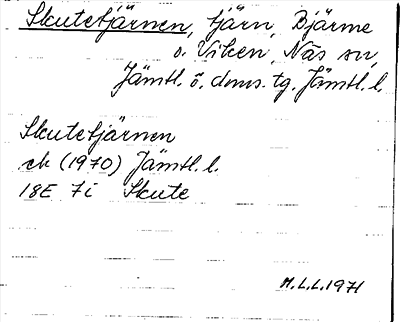 Skutetjärnen, tjärn, Bjärme
o. Viken, Näs sn,
Jämtl. ö. doms. tg. Jämtl. l.
Skutetjärnen
ek (1970) Jämtl. l.
18E 7i Skute
M.L.L. 1971